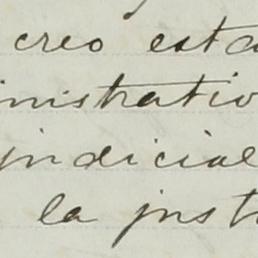 creo esta
inistrativo
judicial
la just